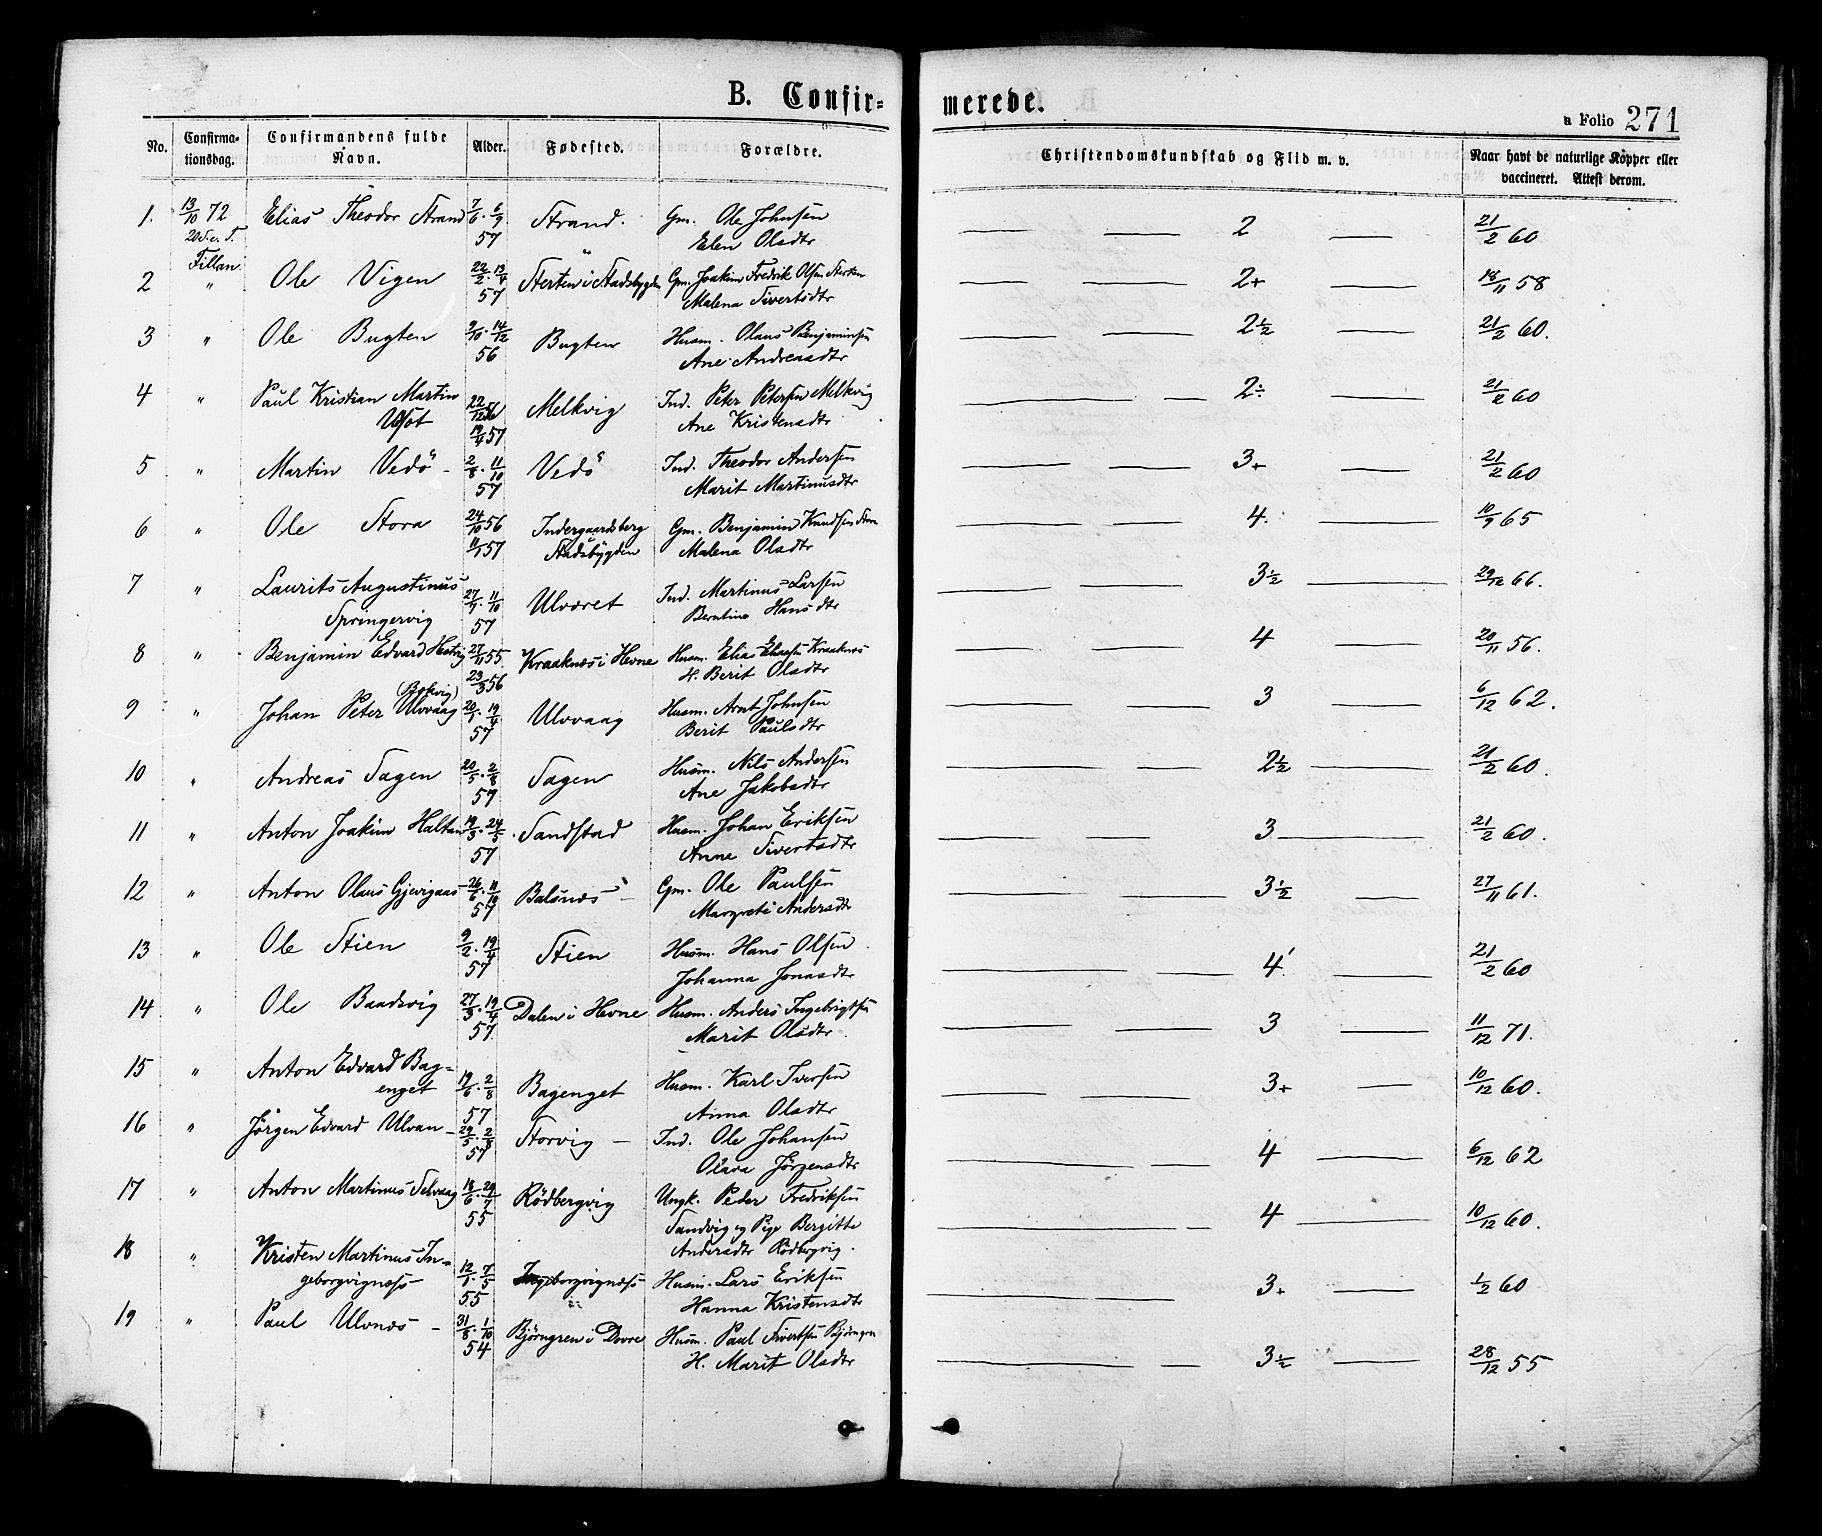 B. Confir-
merede.
a Folio 271
No. Confirma-tionsdag. Confirmandens fulde Navn. Alder. Fødested. Forældre. Christendomskundskab og Flid m. v. Naar havt de naturlige Kopper eller vaccineret. Attest derom.
1. 13/10 72 Elias Theodor Strand 7/6 · 6/9 Strand. Gm. Ole Johnsen 2 21/2 60
20 S. e. T. 57 Elen Olsdtr
Fillan
2 " Ole Vigen 22/2 · 13/4 Sterten i Stadsbygden Gm. Joakim Fredrik Olsen Sterten 2+ 18/11 58
57 Malena Sivertsdtr
3 " Ole Bugten 9/10 · 14/12 Bugten Husm. Olaus Benjaminsen 2½ 21/2 60.
56 Ane Andreasdtr
4 " Paul Kristian Martin 22/12 56 Melkvig Ind. Peter Petersen Melkvig 2÷ 21/2 60
19/4 57 Ane Kristensdtr
5 " Martin Vedö - 2/8 · 11/10 Vedö Ind. Theodor Andersen 3+ 21/2 60
57 Marit Martinusdtr
6 " Ole Stora 24/10 56 Indergaardsberg Gm. Benjamin Knudsen Stora 4. 10/9 65
11/1 57 Stadsbygden Malena Olsdtr
7 " Laurits Augustinus 27/9 · 11/10 Ulvøret Ind. Martinus Larsen 3½ 29/12 66.
Springervig 57 Berntine Hansdtr
8 " Benjamin Edvard Hestvig 27/11 55. Kraaknæs i Hevne Husm. Elias Eliassen Kraaknæs 4 20/11 56.
23/3 56 H. Berit Olsdtr
9 " Johan Peter Ulvvaag 20/1 · 19/4 Ulvvaag Husm. Arnt Johnsen 3 6/12 62.
57 Berit Paulsdtr
10 " Andreas Sagen 20/5 · 2/8 Sagen Husm. Nils Andersen 2½ 21/2 60.
57 Ane Jakobsdtr
11 " Anton Joakim Haltan 19/3 · 24/5 Sandstad Husm. Johan Eriksen 3 21/2 60.
57 Anne Sivertsdtr
12 " Anton Olaus Gjevigaas 26/6 · 11/10 Balsnæs - Gm. Ole Paulsen 3½ 27/11 61.
57 Margrete Andersdtr
13 " Ole Stien 9/2 · 19/4 Stien Husm. Hans Olsen 4. 21/2 60
57 Johanna Jonasdtr
14 " Ole Baadsvig 27/3 · 19/4 Dalen i Hevne Husm. Anders Ingebrigtsen 3 11/12 71.
57. Marit Olsdtr.
15 " Anton Edvard Bag-
enget 19/6 · 2/8 Bagenget Husm. Karl Iversen 3+ 10/12 60.
57 Anna Olsdtr
16 " Jørgen Edvard Ulvan - 29/5 · 2/8 Storvig - Ind. Ole Johansen 4 6/12 62
57 Olava Jørgensdtr
17 " Anton Martinus Selvaag 18/6 · 29/7 Rödbergvig Ungk. Peder Fredriksen 4 10/12 60.
55 Sandvig og Pige Bergitte
Andersdtr Rödbergvig.
18 " Kristen Martinus In-
geborgvignæss 12/1 · 7/5 Ingeborgvignæss Husm. Lars Eriksen 3+ 1/2 60
55 Hanna Kristensdtr
19 " Paul Ulvnæs - 31/8 · 1/10 Björngren i Dovre Husm. Paul Sivertsen Björngren 3½ 28/12 55
54 H. Marit Olsdtr